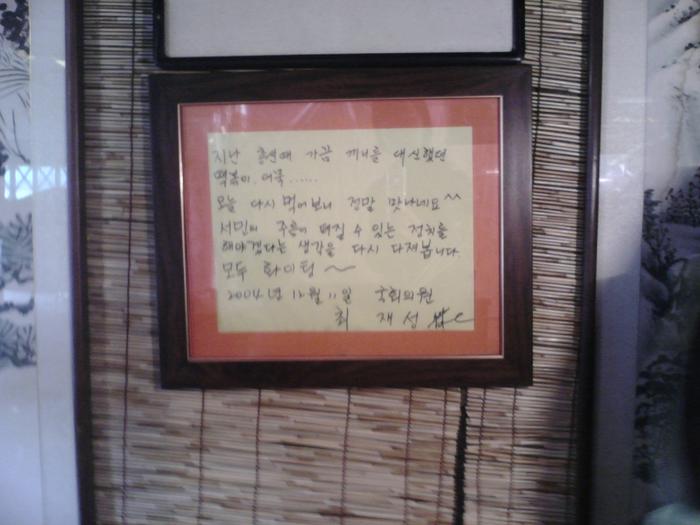 지난 총선때 가끔 끼니를 대신했던
떡볶이, 어묵......
오늘 다시 먹어보니 정말 맛나네요^^
서민이 주름이 펴질 수 있는 정치를
해야겠다는 생각을 다시 다져봅니다.
모두 화이팅~
2004년 12월 11일 국회의원
최 재성